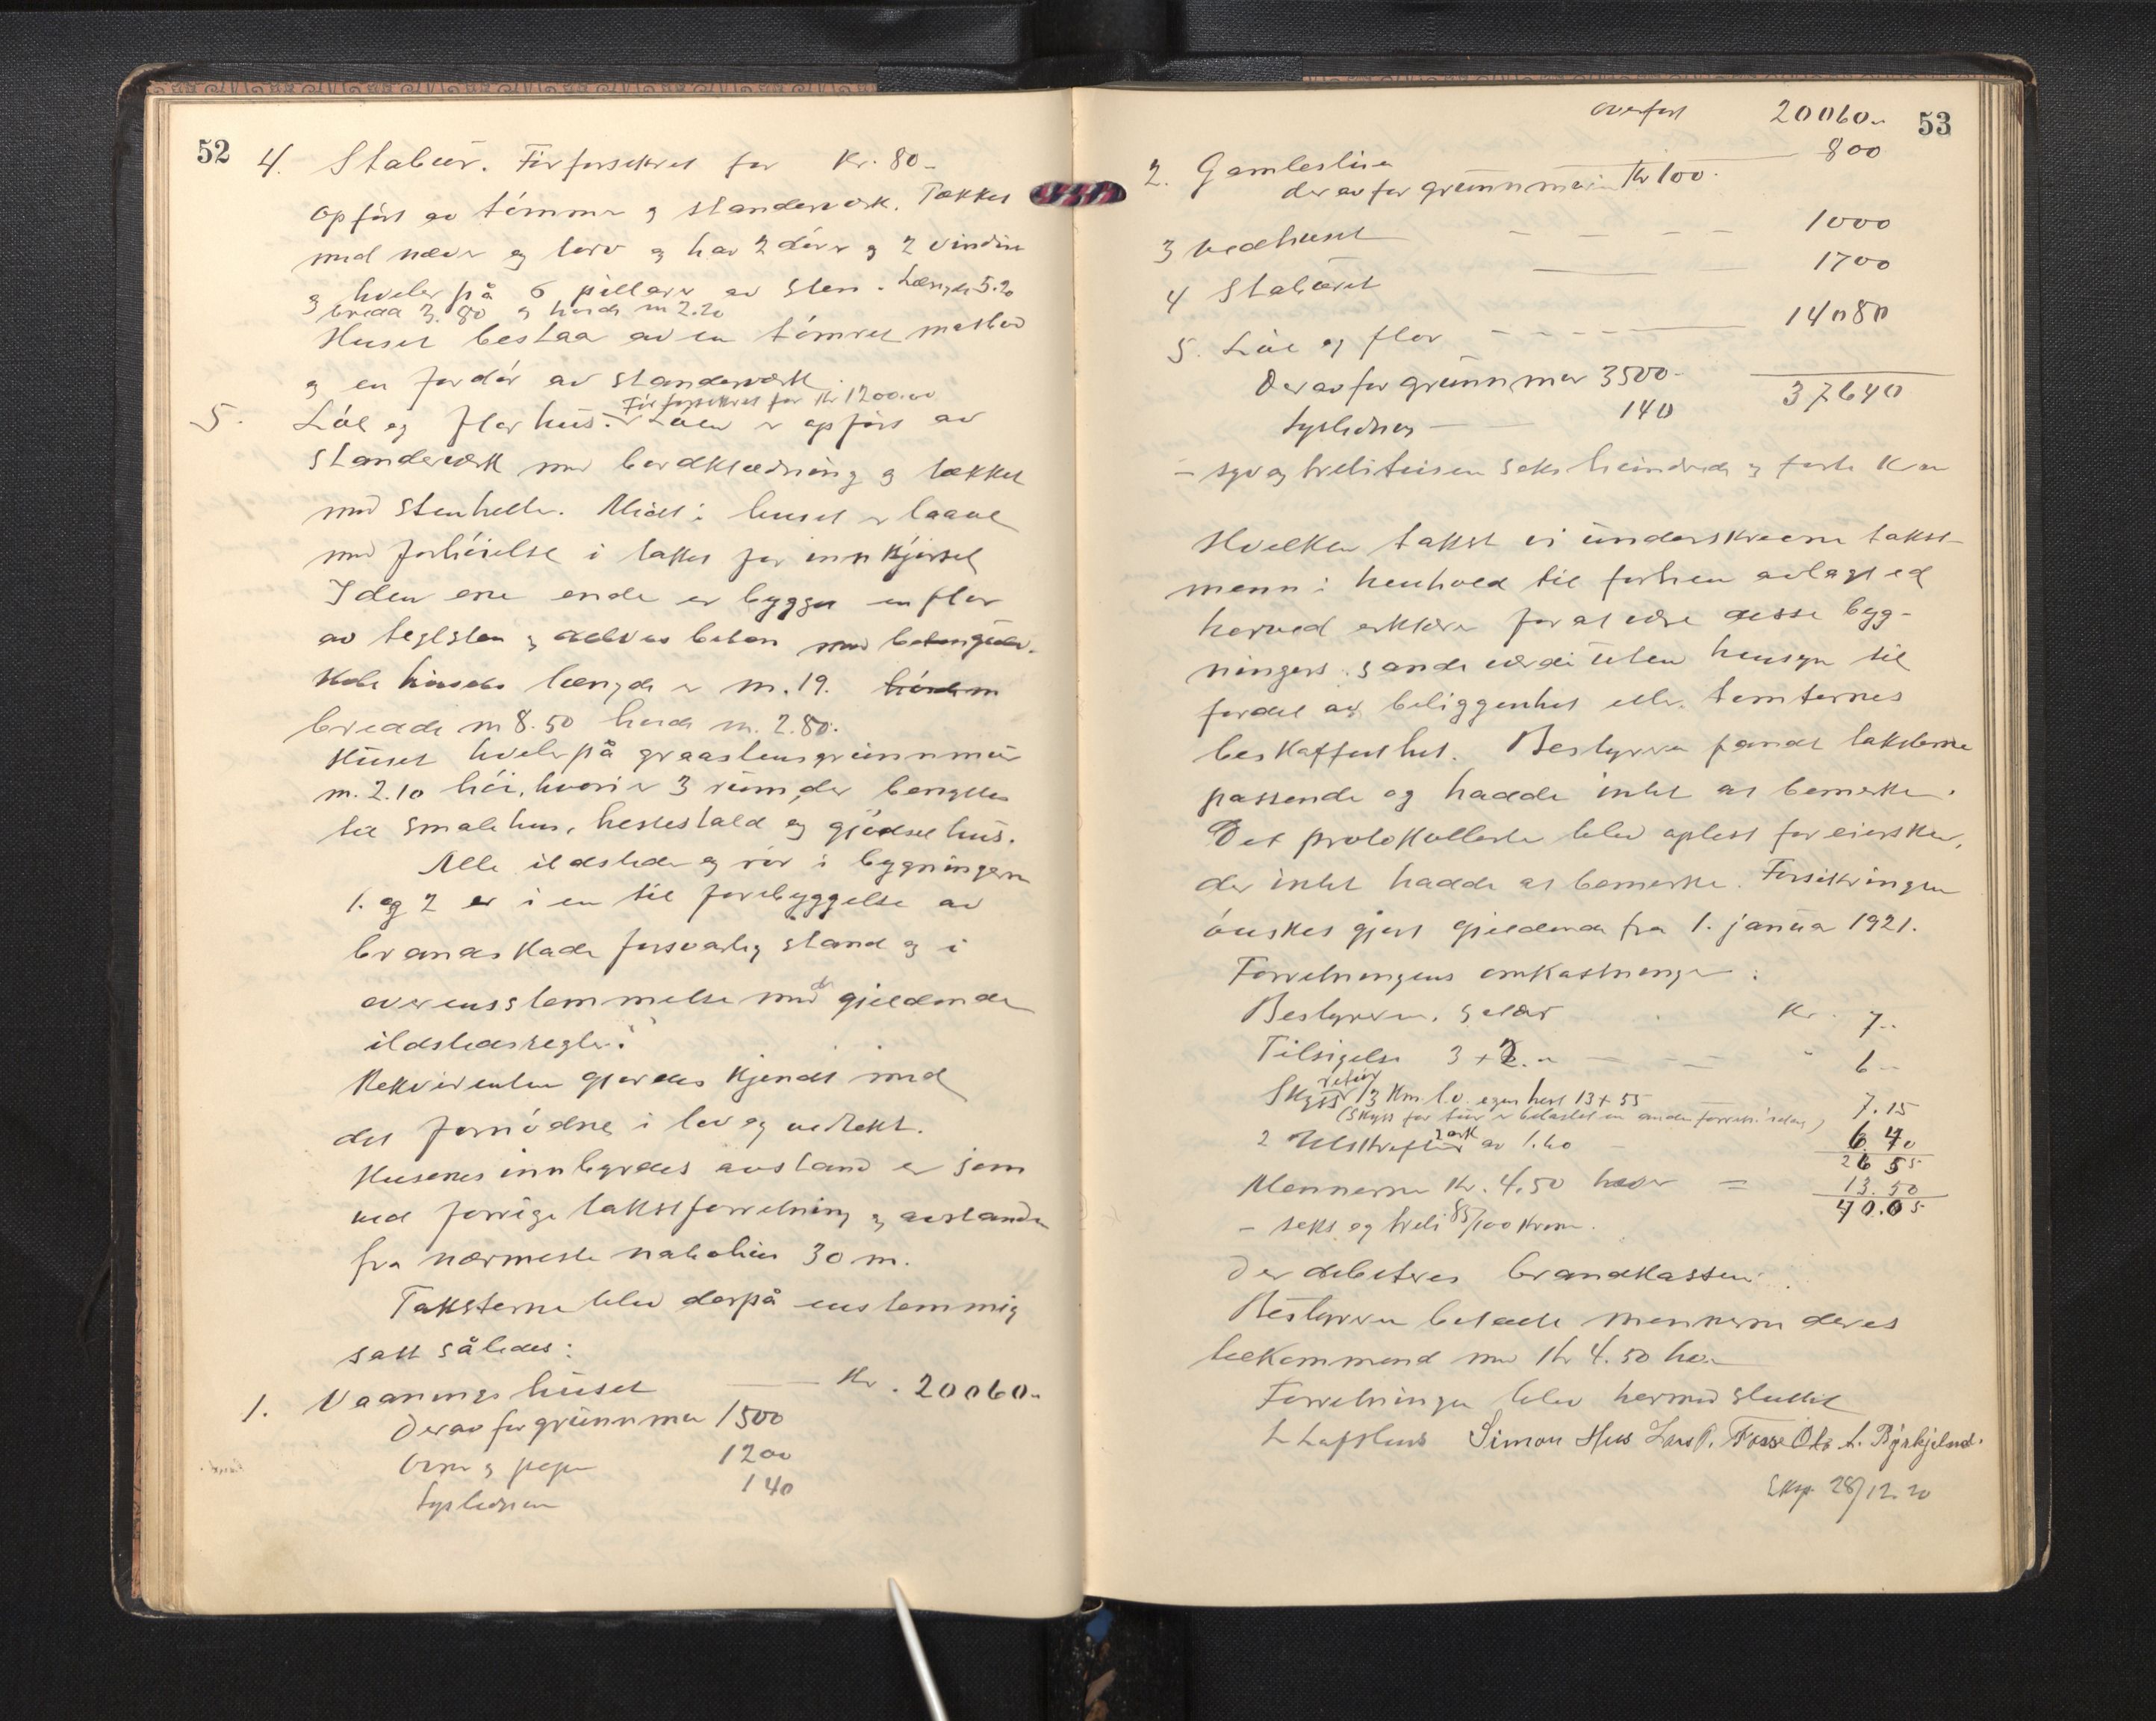 52
4. Stabur. Før forsikret for Kr. 80-
opført av tømmer og standerverk. Tækket
med næver og torv og har 2 dører og 2 vinduer
og hviler på 6 pillarer av sten. Længde 5.20
bredd 3.80 og høide m 2.20
Huset bestaar av en tømret matbod
og en fordør av standerverk.
Før forsikret for Kr 1200.00
5. Løe og flor hus. Løen er opført av
standerverk med bordklædning og tækket
med stenheller. Midt i huset er laave
med forhøielse i taket for innkjørsel
I den ene ende er bygget en flor
av teglsten og delvis beton med
Hele husets længde er m. 19. høiden
bredde m 8.50 høide m. 2.80.
Huset hviler på graastensgrunnmur
m. 2.10 høi, hvori er 3 rum, der benyttes
til smalehus, hestestald og gjødselhus.
Alle ildsteder og rør i bygningerne
1. og 2 er i en til forebyggelse av
brandskade forsvarlig stand og i
overensstemmelse med de gjeldende
ildstedsregler.
Rekvirenten gjordes kjendt med
det fornødne i lov og vedtekt.
Husenes innbyrdes avstand er som
ved forrige takstforretning og avstanden
fra nærmeste nabohus 30 m.
Taksterne blev derpå enstemmig
satt således:
1. Vaaningshuset Kr. 20060-
Derav for grunnmur 1500
Ovner og piper 1200
Lysledning 140
53
overført 20060-
2. Gamlestua 800
derav for grunnmuren Kr 100.
3 Vedhuset 1000
4 Staburet 1700
5. Løe og flor 14080
Derav for grunnmur 3500- 37640
Lysledning 140
- syv og tretitusen seks hundrede og førti Kr
Hvilken takst vi underskrevne takst-
menn i henhold til forhen avlagt ed
herved erklærer for at være disse byg-
ningers sande værdi uten hensyn til
fordel av beliggenhet eller tomternes
beskaffenhet. Bestyreren fandt taksterne
passende og hadde intet at bemerke.
Det protokollerte blev oplest for eiersken,
der intet hadde at bemerke. Forsikringen
ønskes gjort gjeldende fra 1. januar 1921.
Forretningens omkostninger:
Bestyreren, salær Kr. 7-
Tilsigelse 3 + 2.- " 6-
retur
Skyss 13 Km. l.v. egen hest 13 + 55 7.15
(Skyss for tur er belastet en anden forretn. idag)
2 Utskrifter 2 ark av 1.60 6.40
26 55
Mennerne Kr. 4.50 hver = 13.50
40.05
- seks og treti 85/100 Kroner.
Der debiteres brandkassen.
Bestyreren betalte mennerne deres
tilkommend med Kr 4.50 hver
Forretningen blev hermed sluttet
L Lofthus Simon Hus Lars P. Fosse Ola A. Byrkjeland.
Eksp. 28/12.20